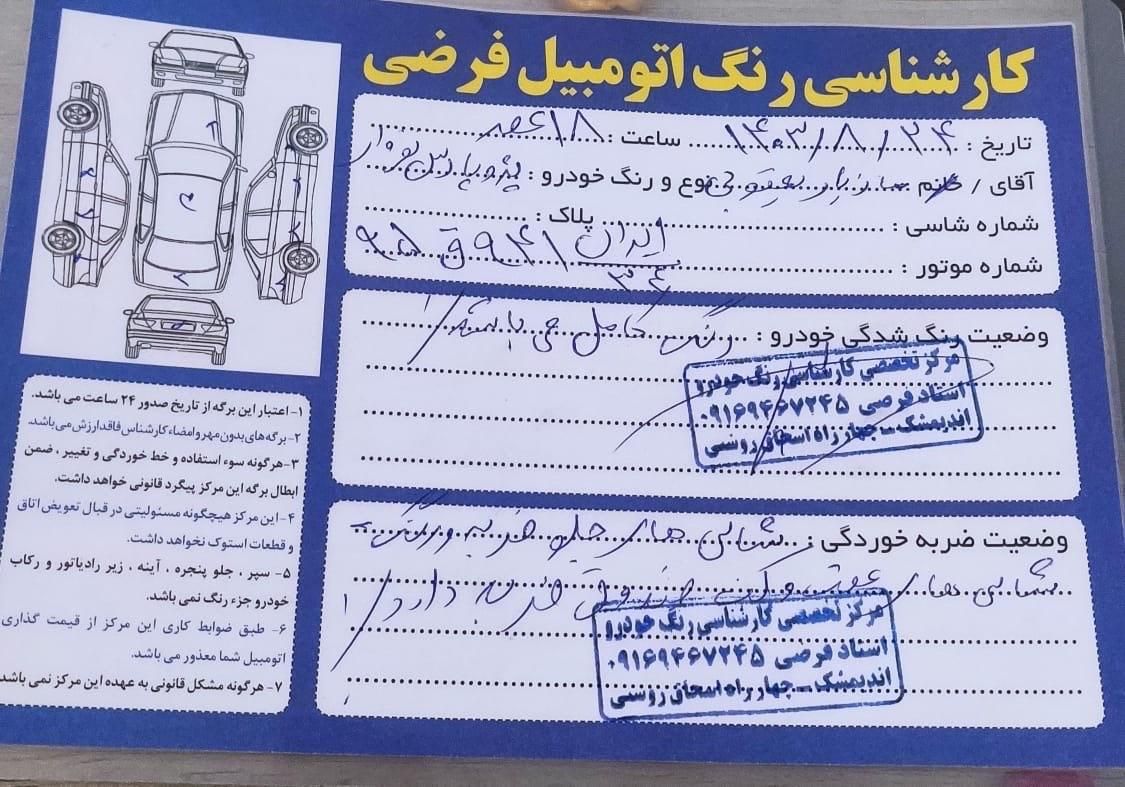 کارشناسی رنگ اتومبیل فرضی
تاریخ : ۱۴۰۳/۸/۲۴ ساعت : ۱۸ عصر
آقای / خانم نوع و رنگ خودرو : پژو پارس
شماره شاسی : پلاک :
شماره موتور : ایران ۳۴ ۹۴۱ ق ۹۵
وضعیت رنگ شدگی خودرو : رنگ کامل می باشد
مرکز تخصصی کارشناسی رنگ خودرو
استاد فرضی ۰۹۱۶۹۴۶۷۲۴۵
اندیمشک - چهار راه اسحاق روسی
وضعیت ضربه خوردگی : شاسی های جلو ضربه و رنگ
شاسی های عقب و کف صندوق ضربه دارد
مرکز تخصصی کارشناسی رنگ خودرو
استاد فرضی ۰۹۱۶۹۴۶۷۲۴۵
اندیمشک - چهار راه اسحاق روسی
۱- اعتبار این برگه از تاریخ صدور ۲۴ ساعت می باشد.
۲- برگه های بدون مهر و امضاء کارشناس فاقد ارزش می باشد.
۳- هرگونه سوء استفاده و خط خوردگی و تغییر ، ضمن
ابطال برگه این مرکز پیگرد قانونی خواهد داشت.
۴- این مرکز هیچگونه مسئولیتی در قبال تعویض اتاق
و قطعات استوک نخواهد داشت.
۵- سپر ، جلو پنجره ، آینه ، زیر رادیاتور و رکاب
خودرو جزء رنگ نمی باشد.
۶- طبق ضوابط کاری این مرکز از قیمت گذاری
اتومبیل شما معذور می باشد.
۷- هرگونه مشکل قانونی به عهده این مرکز نمی باشد